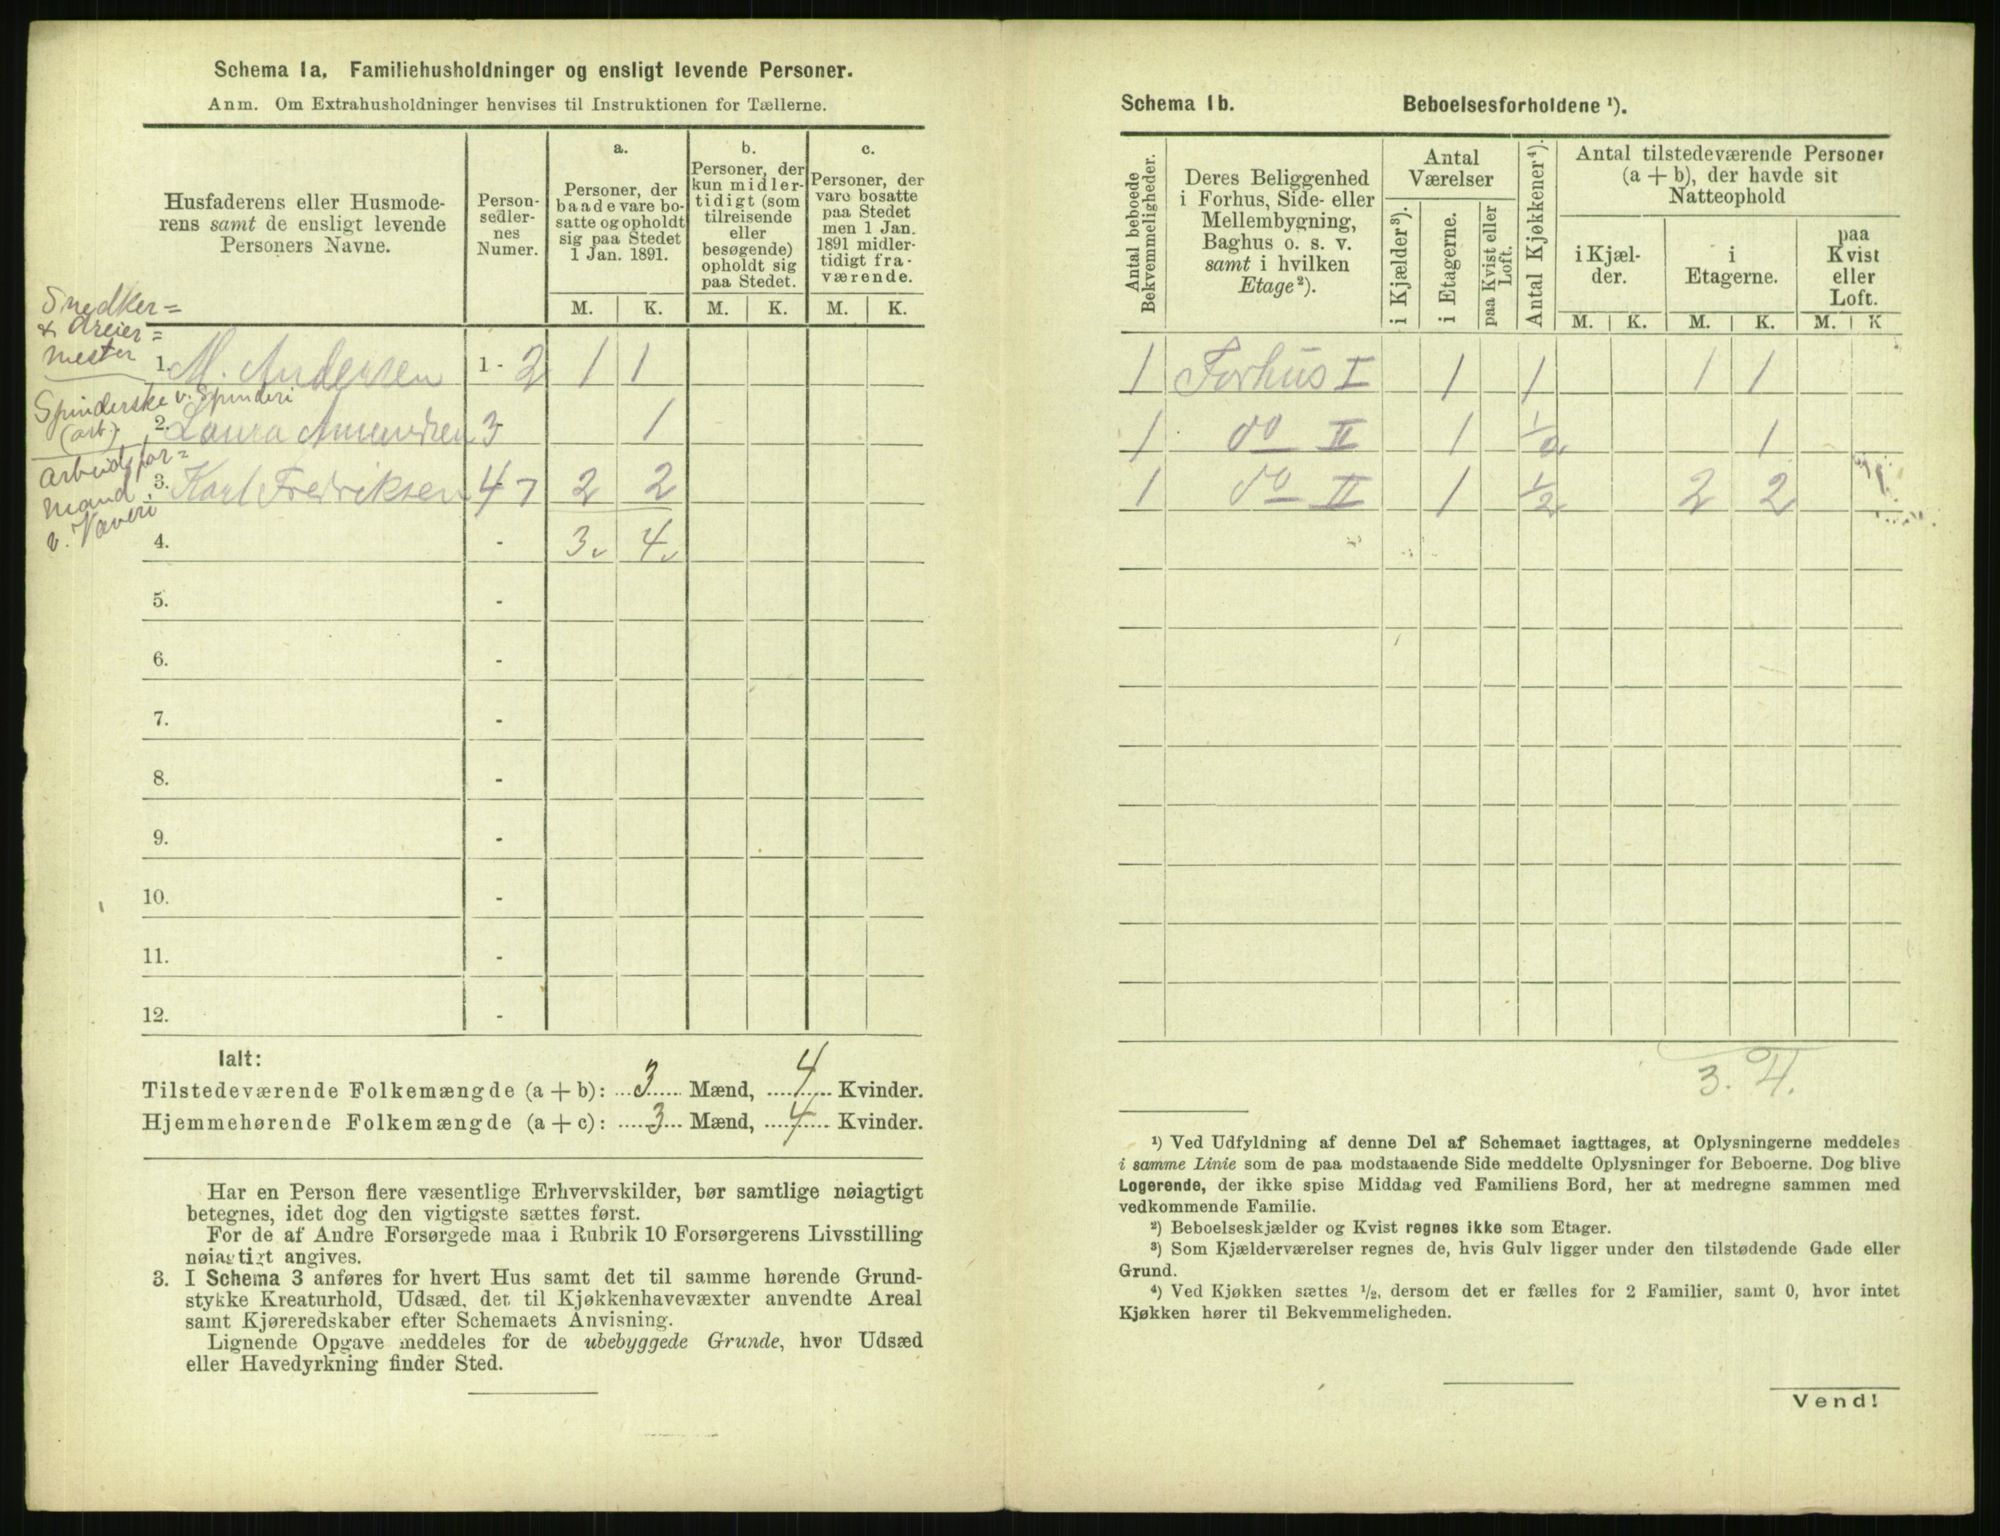 Schema 1a. Familiehusholdninger og ensligt levende Personer.
Anm. Om Extrahusholdninger henvises til Instruktionen for Tællerne.
Husfaderens eller Husmode-
rens samt de ensligt levende
Personers Navne.
Person-
sedler-
nes
Numer.
a.
Personer, der
baade vare bo-
satte og opholdt
sig paa Stedet
1 Jan. 1891.
b.
Personer, der
kun midler-
tidigt (som
tilreisende
eller
besøgende)
opholdt sig
paa Stedet.
c.
Personer, der
vare bosatte
paa Stedet
men 1 Jan.
1891 midler-
tidigt fra-
værende.
M. K. M. K. M. K.
Snedker=
& dreier=
mester
1. M. Andersen 1 - 2 1 1
Spinderske v. Spinderi
(arb)
2. Laura Amundsen 3 1
Arbeidsfor=
mand
v. Væveri
3. Karl Fredriksen 4-7 2 2
4. - 3 4
5. -
6. -
7. -
8. -
9. -
10. -
11. -
12. -
Ialt:
Tilstedeværende Folkemængde (a + b): 3 Mænd, 4 Kvinder.
Hjemmehørende Folkemængde (a + c): 3 Mænd, 4 Kvinder.
Har en Person flere væsentlige Erhvervskilder, bør samtlige nøiagtigt
betegnes, idet dog den vigtigste sættes først.
For de af Andre Forsørgede maa i Rubrik 10 Forsørgerens Livsstilling
nøiagtigt angives.
3. I Schema 3 anføres for hvert Hus samt det til samme hørende Grund-
stykke Kreaturhold, Udsæd, det til Kjøkkenhavevæxter anvendte Areal
samt Kjøreredskaber efter Schemaets Anvisning.
Lignende Opgave meddeles for de ubebyggede Grunde, hvor Udsæd
eller Havedyrkning finder Sted.
Schema 1b. Beboelsesforholdene ¹).
Antal beboede
Bekvemmeligheder.
Deres Beliggenhed
i Forhus, Side- eller
Mellembygning,
Baghus o. s. v.
samt i hvilken
Etage²).
Antal
Værelser
i Kjælder³).
i Etagerne.
paa Kvist eller
Loft.
Antal Kjøkkener⁴).
Antal tilstedeværende Personer
(a + b), der havde sit
Natteophold
i Kjæl-
der.
i
Etagerne.
paa
Kvist
eller
Loft.
M. K. M. K. M. K
1 Forhus I 1 1 1 1
1 do II 1 1/2 1
1 do II 1 1/2 2 2
3. 4.
¹) Ved Udfyldning af denne Del af Schemaet iagttages, at Oplysningerne meddeles
i samme Linie som de paa modstaaende Side meddelte Oplysninger for Beboerne. Dog blive
Logerende, der ikke spise Middag ved Familiens Bord, her at medregne sammen med
vedkommende Familie.
²) Beboelseskjælder og Kvist regnes ikke som Etager.
³) Som Kjælderværelser regnes de, hvis Gulv ligger under den tilstødende Gade eller
Grund.
⁴) Ved Kjøkken sættes ½, dersom det er fælles for 2 Familier, samt 0, hvor intet
Kjøkken hører til Bekvemmeligheden.
Vend!